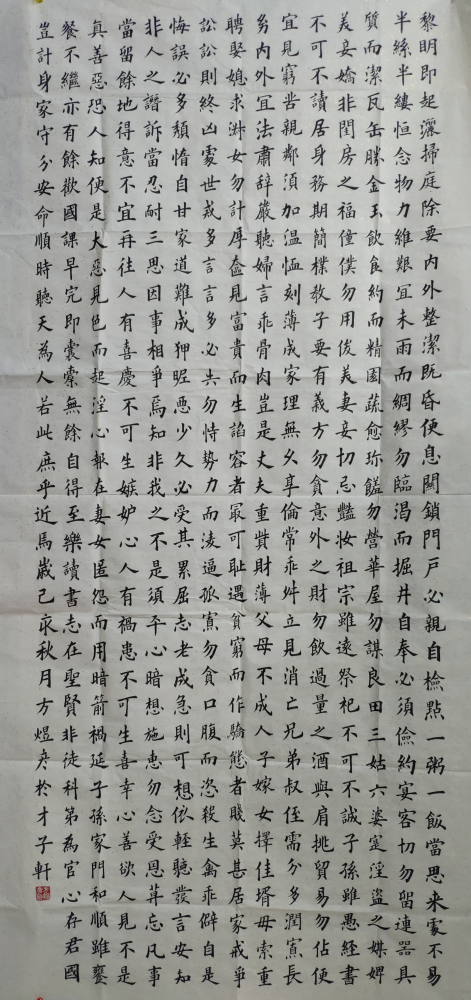 黎明即起灑掃庭除要內外整潔既昏便息關鎖門戶必親自檢點一粥一飯當思来處不易
半絲半縷恒念物力維艱宜未雨而綢繆勿臨渴而掘井自奉必須儉約宴客切勿留連器具
質而潔瓦缶勝金玉飲食約而精園蔬愈珍饈勿營華屋勿謀良田三姑六婆寔淫盜之媒婢
美妾嬌非閨房之福僮僕勿用俊美妻妾切忌豔妝祖宗雖遠祭祀不可不誠子孫雖愚經書
不可不讀居身務期簡樸教子要有義方勿貪意外之財勿飲過量之酒與肩挑貿易勿佔便
宜見窮苦親鄰須加溫恤刻薄成家理無久享倫常乖舛立見消亡兄弟叔侄需分多潤寡長
幼內外宜法肅辭嚴聽婦言乖骨肉豈是丈夫重貲財薄父母不成人子嫁女擇佳壻毋索重
聘娶媳求淑女勿計厚奩見富貴而生諂容者最可恥遇貧窮而作驕態者賤莫甚居家戒爭
訟訟則終凶處世戒多言言多必失勿恃勢力而凌逼孤寡勿貪口腹而恣殺生禽乖僻自是
悔誤必多頹惰自甘家道難成狎昵惡少久必受其累屈志老成急則可想依輕聽發言安知
非人之譖訴當忍耐三思因事相爭焉知非我之不是須平心暗想施惠勿念受恩莫忘凡事
當留餘地得意不宜再往人有喜慶不可生嫉妒心人有禍患不可生喜幸心善欲人見不是
真善惡恐人知便是大惡見色而起淫心報在妻女匿怨而用暗箭禍延子孫家門和順雖饔
餐不繼亦有餘歡國課早完即囊橐無餘自得至樂讀書志在聖賢非徒科第為官心存君國
豈計身家守分安命順時聽天為人若此庶乎近焉歲己亥秋月方煜彥於才子軒